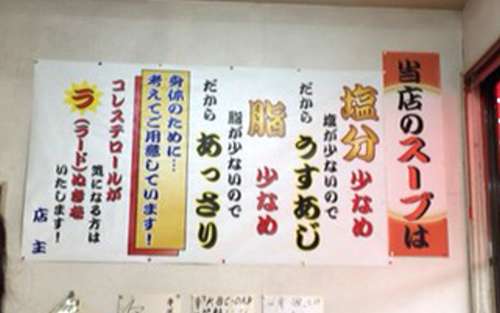 当店のスープは
塩分少なめ
塩が少ないので
だからうすあじ
脂少なめ
脂が少ないので
だからあっさり
身体のために…
考えてご用意しています!
コレステロールが
気になる方は
ラ(ラード)ぬきを
いたします!
店主